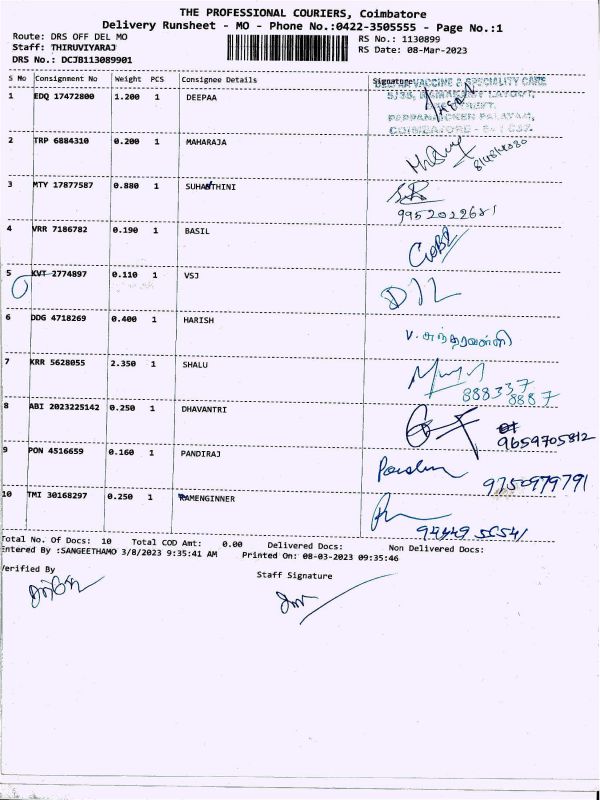 THE PROFESSIONAL COURIERS, Coimbatore
Delivery Runsheet - MO - Phone No.:0422-3505555 - Page No.:1
Route: DRS OFF DEL MO
RS No.: 1130899
Staff: THIRUVIYARAJ
RS Date: 08-Mar-2023
DRS No.: DCJB113089901
S No Consignment No Weight PCS Consignee Details Signature
1 EDQ 17472800 1.200 1 DEEPAA
VACCINE & SPECIALITY CARE
COIMBATORE
2 TRP 6884310 0.200 1 MAHARAJA
3 MTY 17877587 0.880 1 SUHANTHINI
9952022681
4 VRR 7186782 0.190 1 BASIL
5 KVT 2774897 0.110 1 VSJ
6 DDG 4718269 0.400 1 HARISH
V. சுந்தரவள்ளி
7 KRR 5628055 2.350 1 SHALU
888337
8887
8 ABI 2023225142 0.250 1 DHAVANTRI
9659705812
9 PON 4516659 0.160 1 PANDIRAJ
9750979791
10 TMI 30168297 0.250 1 RAMENGINNER
Total No. Of Docs: 10 Total COD Amt: 0.00 Delivered Docs: Non Delivered Docs:
Entered By :SANGEETHAMO 3/8/2023 9:35:41 AM Printed On: 08-03-2023 09:35:46
Verified By
Staff Signature